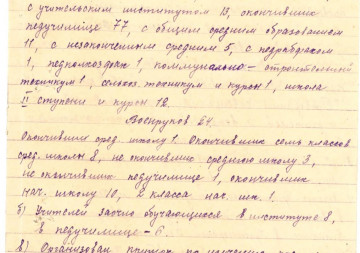 с учительским институтом 13, окончивших
педучилище 77, с общим средним образованием
11, с незаконченным средним 5, с педрабфаком
1, педколхозфак 1, коммунально-строительный
техникум 1, сельхоз. техникум и курсы 1, школа
II ступени и курсы 12.
Воспруков 24.
Окончивших сред. школу 1. Окончивших семь классов
сред. школы 8, не окончивших среднюю школу 3,
не окончивших педучилище 1, окончивших
нач. школу 10, 2 класса нач. шк. 1.
б) Учителей заочно обучающихся в институте 8,
в педучилище - 6.
в) Организован